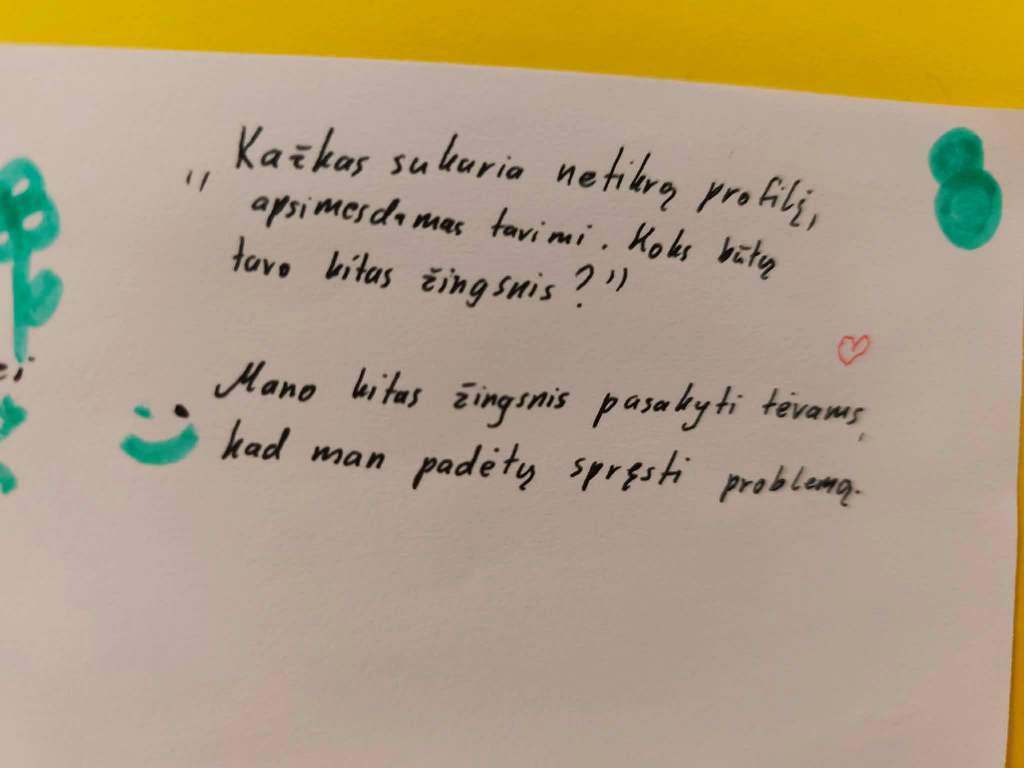 "Kažkas sukuria netikrą profilį,
apsimesdamas tavimi. Koks būtų
tavo kitas žingsnis?"
Mano kitas žingsnis pasakyti tėvams,
kad man padėtų spręsti problemą.